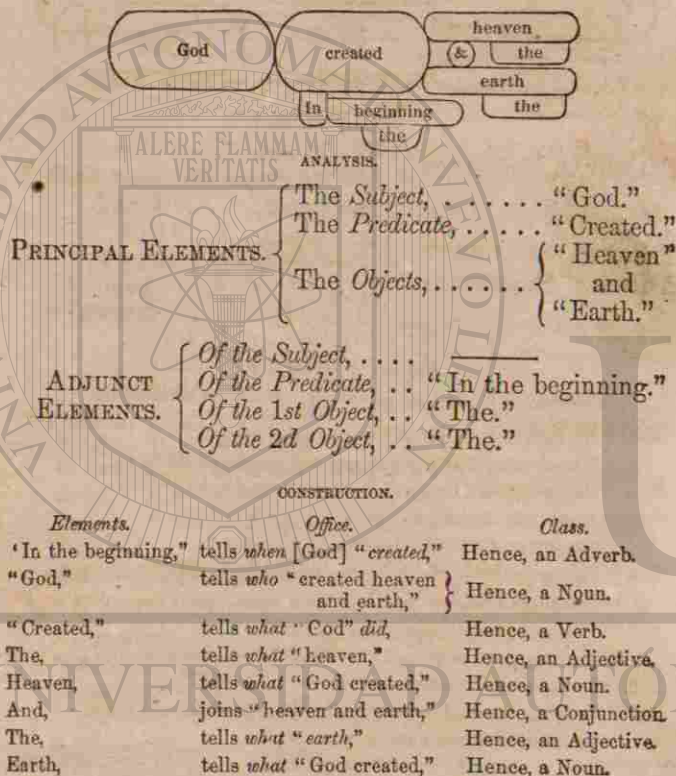 God created heaven
& the
earth
In beginning the
the
ANALYSIS.
PRINCIPAL ELEMENTS.
The Subject, . . . . . . . "God."
The Predicate, . . . . . "Created."
The Objects, . . . . . . . "Heaven"
and
"Earth."
ADJUNCT
ELEMENTS.
Of the Subject, . . . .
Of the Predicate, . . "In the beginning."
Of the 1st Object, . . "The."
Of the 2d Object, . . "The."
CONSTRUCTION.
Elements. Office. Class.
'In the beginning," tells when [God] "created," Hence, an Adverb.
"God," tells who "created heaven
and earth," Hence, a Noun.
"Created," tells what "God" did, Hence, a Verb.
The, tells what "heaven," Hence, an Adjective.
Heaven, tells what "God created," Hence, a Noun.
And, joins "heaven and earth," Hence, a Conjunction.
The, tells what "earth," Hence, an Adjective.
Earth, tells what "God created," Hence, a Noun.
ALERE FLAMMAM
VERITATIS